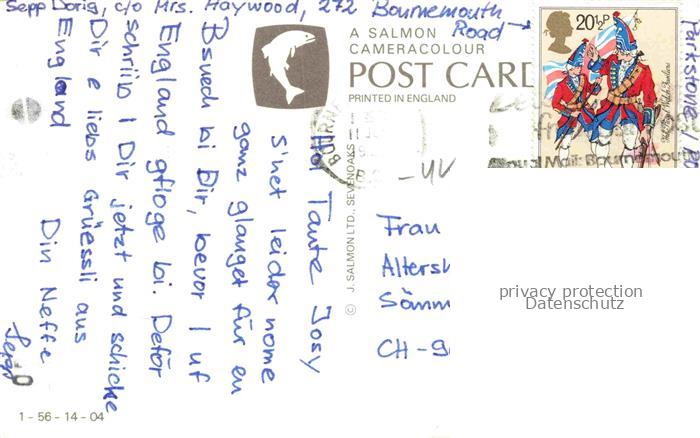 Sepp Dörig, c/o Mrs. Haywood, 272 Bournemouth
Road →
Parkstone
A SALMON
CAMERACOLOUR
POST CARD
PRINTED IN ENGLAND
20½P
Royal Mail: Bournemouth
© J. SALMON LTD., SEVENOAKS
Hoi Tante Josy
S'het leider nome
ganz glanget für en
Bsuech bi Dir, bevor I uf
England gfloge bi. Deför
schriib I Dir jetzt und schicke
Dir e liebs Grüessli aus
England
Din Neffe
Sepp
Frau
Alters
Sömm
CH-9
privacy protection
Datenschutz
1 - 56 - 14 - 04